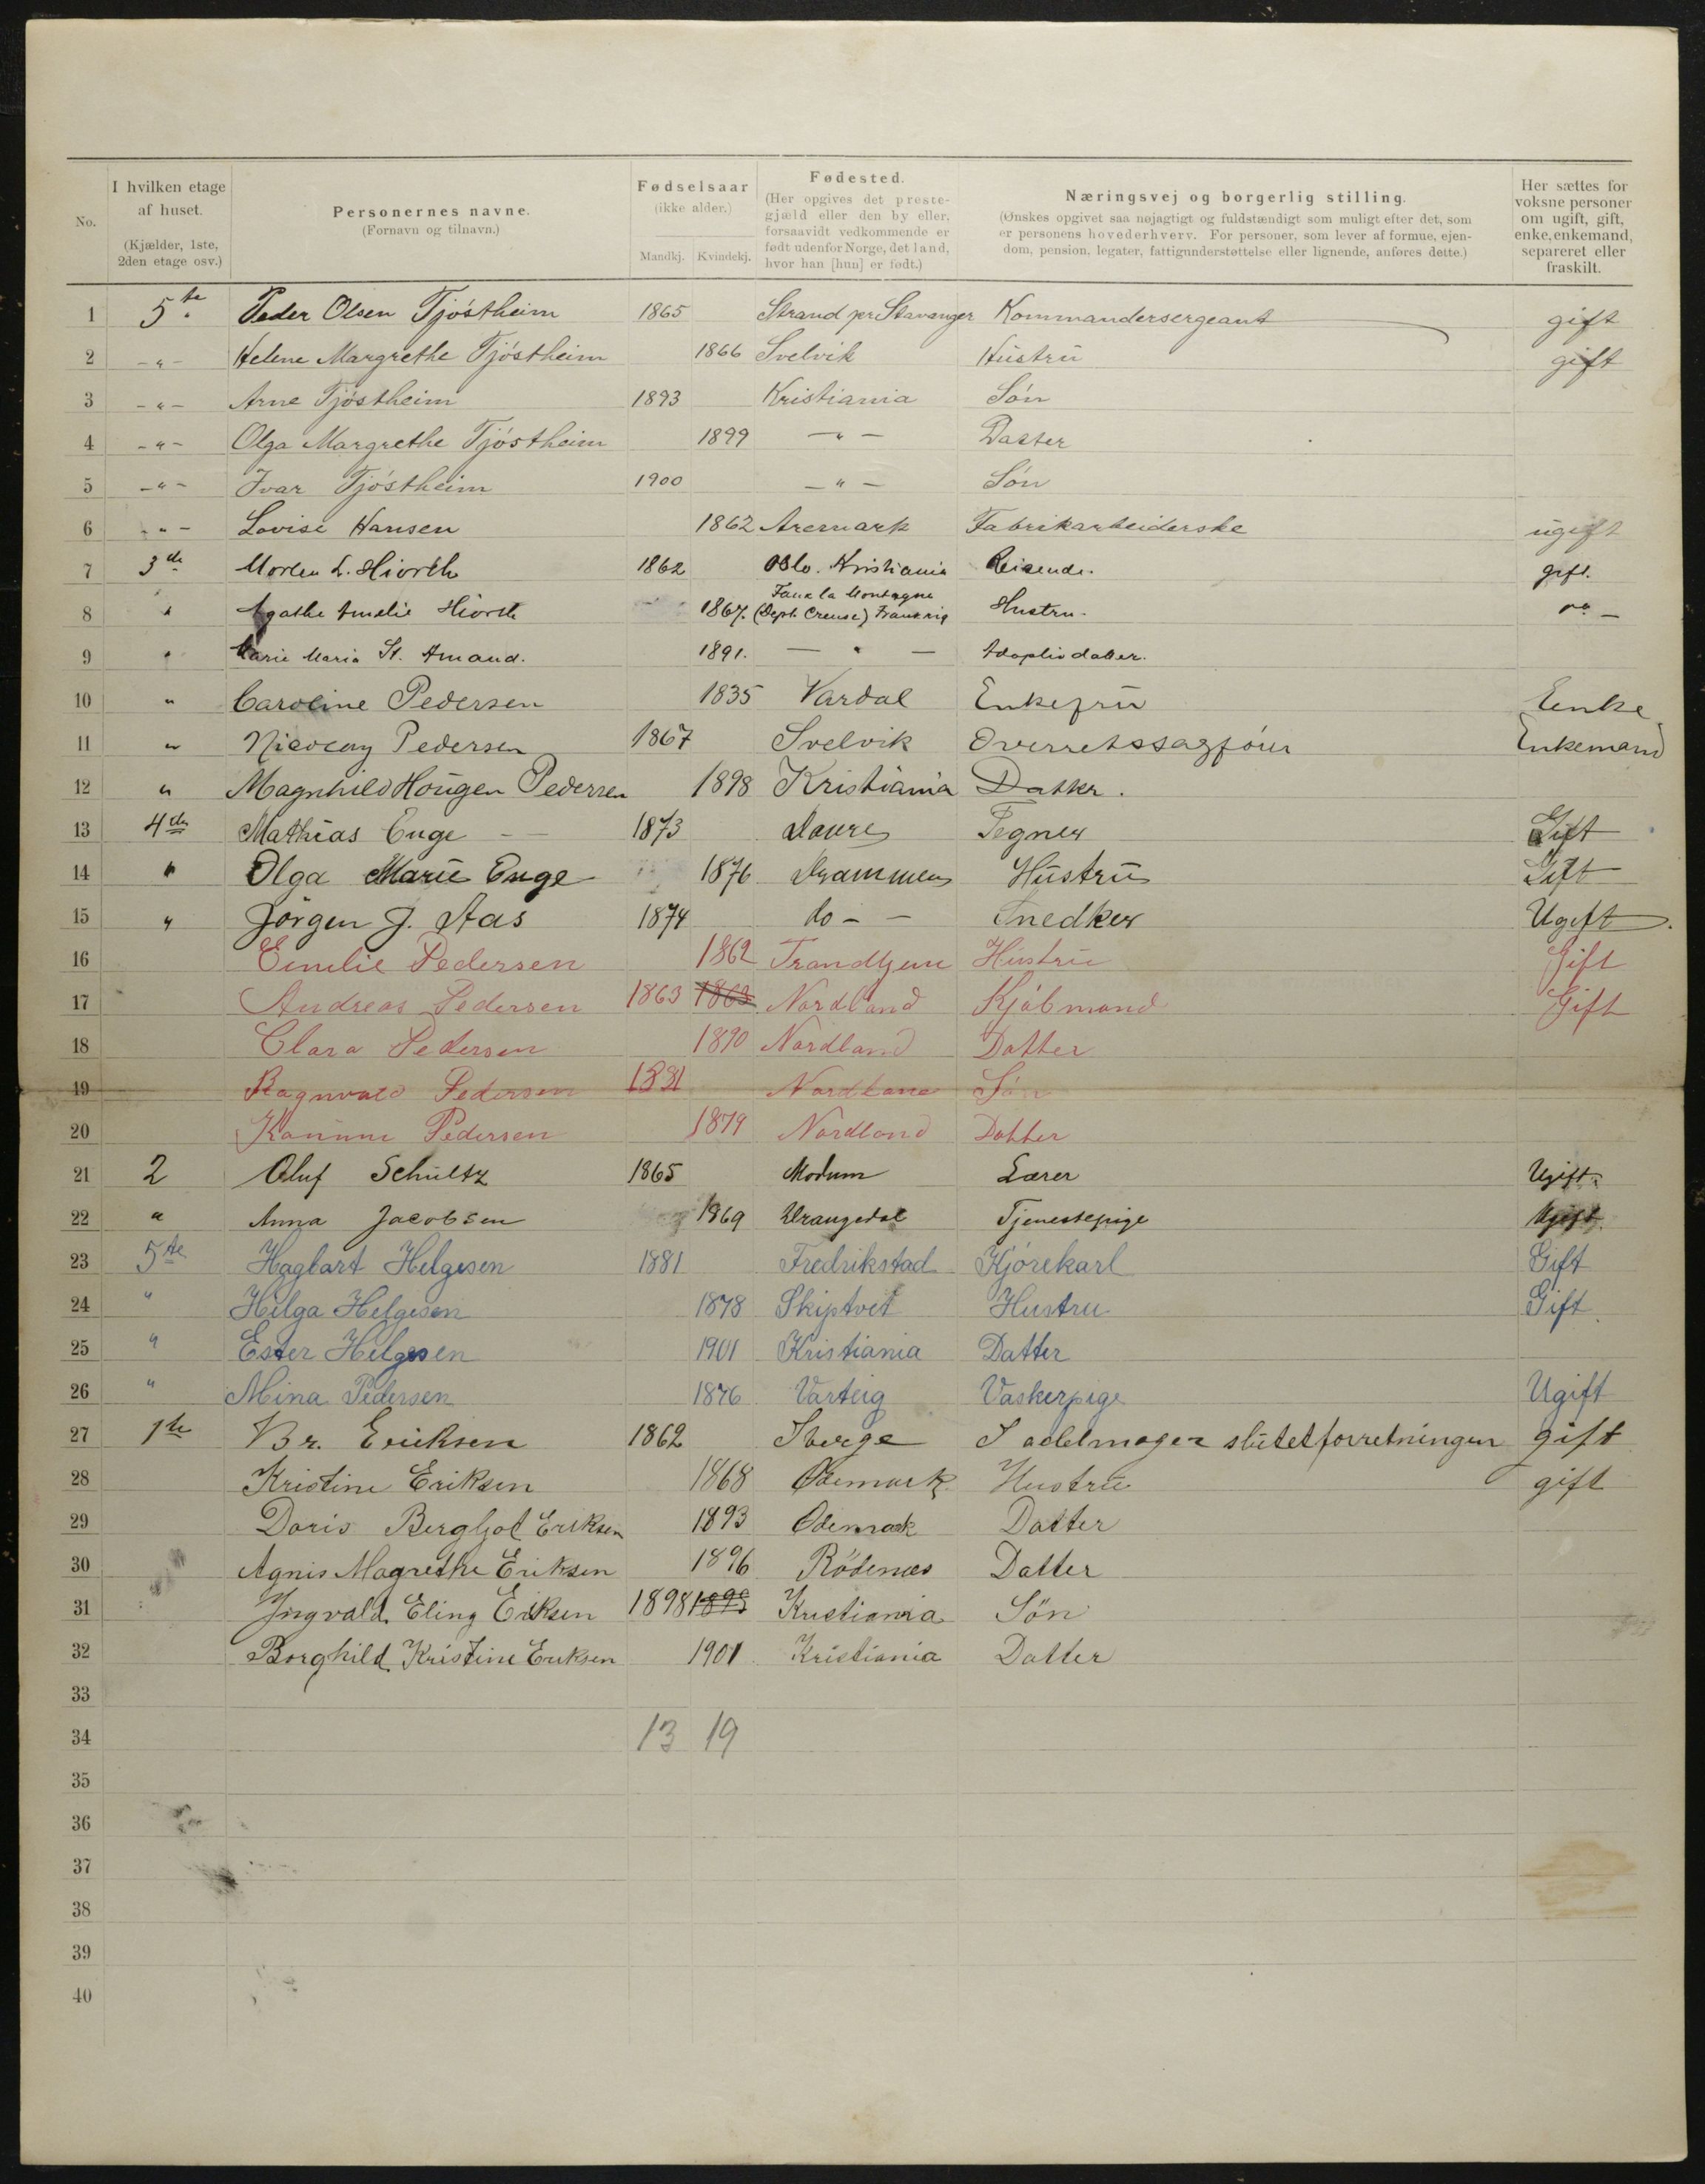 No. I hvilken etage af huset. (Kjælder, 1ste, 2den etage osv.) Personernes navne. (Fornavn og tilnavn.) Fødselsaar (ikke alder.) Mandkj. Kvindekj. Fødested. (Her opgives det prestegjæld eller den by eller, forsaavidt vedkommende er født udenfor Norge, det land, hvor han [hun] er født.) Næringsvej og borgerlig stilling. (Ønskes opgivet saa nøjagtigt og fuldstændigt som muligt efter det, som er personens hovederhverv. For personer, som lever af formue, ejendom, pension, legater, fattigunderstøttelse eller lignende, anføres dette.) Her sættes for voksne personer om ugift, gift, enke, enkemand, separeret eller fraskilt.
1 5te Peder Olsen Tjøstheim 1865 Strand pr Stavanger Kommandersergeant gift
2 -"- Helene Margrethe Tjøstheim 1866 Svelvik Hustru gift
3 -"- Arne Tjøstheim 1893 Kristiania Søn
4 -"- Olga Margrethe Tjøstheim 1899 -"- Datter
5 -"- Ivar Tjøstheim 1900 -"- Søn
6 -"- Lovise Hansen 1862 Aremark Fabrikarbeiderske ugift
7 3de Morten L. Hiorth 1862 Oslo. Kristiania Reisende. gift.
8 " Agathe Amelie Hiorth 1867. Faux la Montagne (Dept. Creuse) Frankrig Hustru.
9 " Marie Maria St. Amand. 1891. - " - Adoptivdatter.
10 " Caroline Pedersen 1835 Vardal Enkefru Enke
11 " Nicolay Pedersen 1867 Svelvik Overretssagfører Enkemand
12 " Magnhild Hougen Pedersen 1898 Kristiania Datter.
13 4de Mathias Enge 1873 Tegner Gift
14 " Olga Marie Enge 1876 Drammen Hustru Gift
15 " Jørgen J. Aas 1874 do - - Snedker Ugift.
16 Emilie Pedersen 1862 Trondhjem Hustru Gift
17 Andreas Pedersen 1863 1863 Nordland Kjøbmand Gift
18 Clara Pedersen 1890 Nordland Datter
19 Ragnvald Pedersen 1881 Nordland Søn
20 Pedersen 1879 Nordland Datter
21 2 Oluf Schultz 1865 Modum Lærer Ugift.
22 " Anna Jacobsen 1869 Drangedal Tjenestepige Ugift.
23 5te Hagbart Helgesen 1881 Fredrikstad Kjørekarl Gift
24 " Helga Helgesen 1878 Skiptvet Hustru Gift.
25 " Ester Helgesen 1901 Kristiania Datter
26 " Mina Pedersen 1876 Varteig Vaskerpige Ugift
27 1te Br. Eriksen 1862 Sverge gift
28 Kristine Eriksen 1868 Ødemark Hustru gift
29 Doris Bergljot Eriksen 1893 Ødemark Datter
30 Agnis Magrethe Eriksen 1896 Rødenæs Datter
31 Yngvald Eling Eriksen 1898 1898 Kristiania Sön
32 Borghild Kristine Eriksen 1901 Kristiania Datter
33
34 13 19
35
36
37
38
39
40